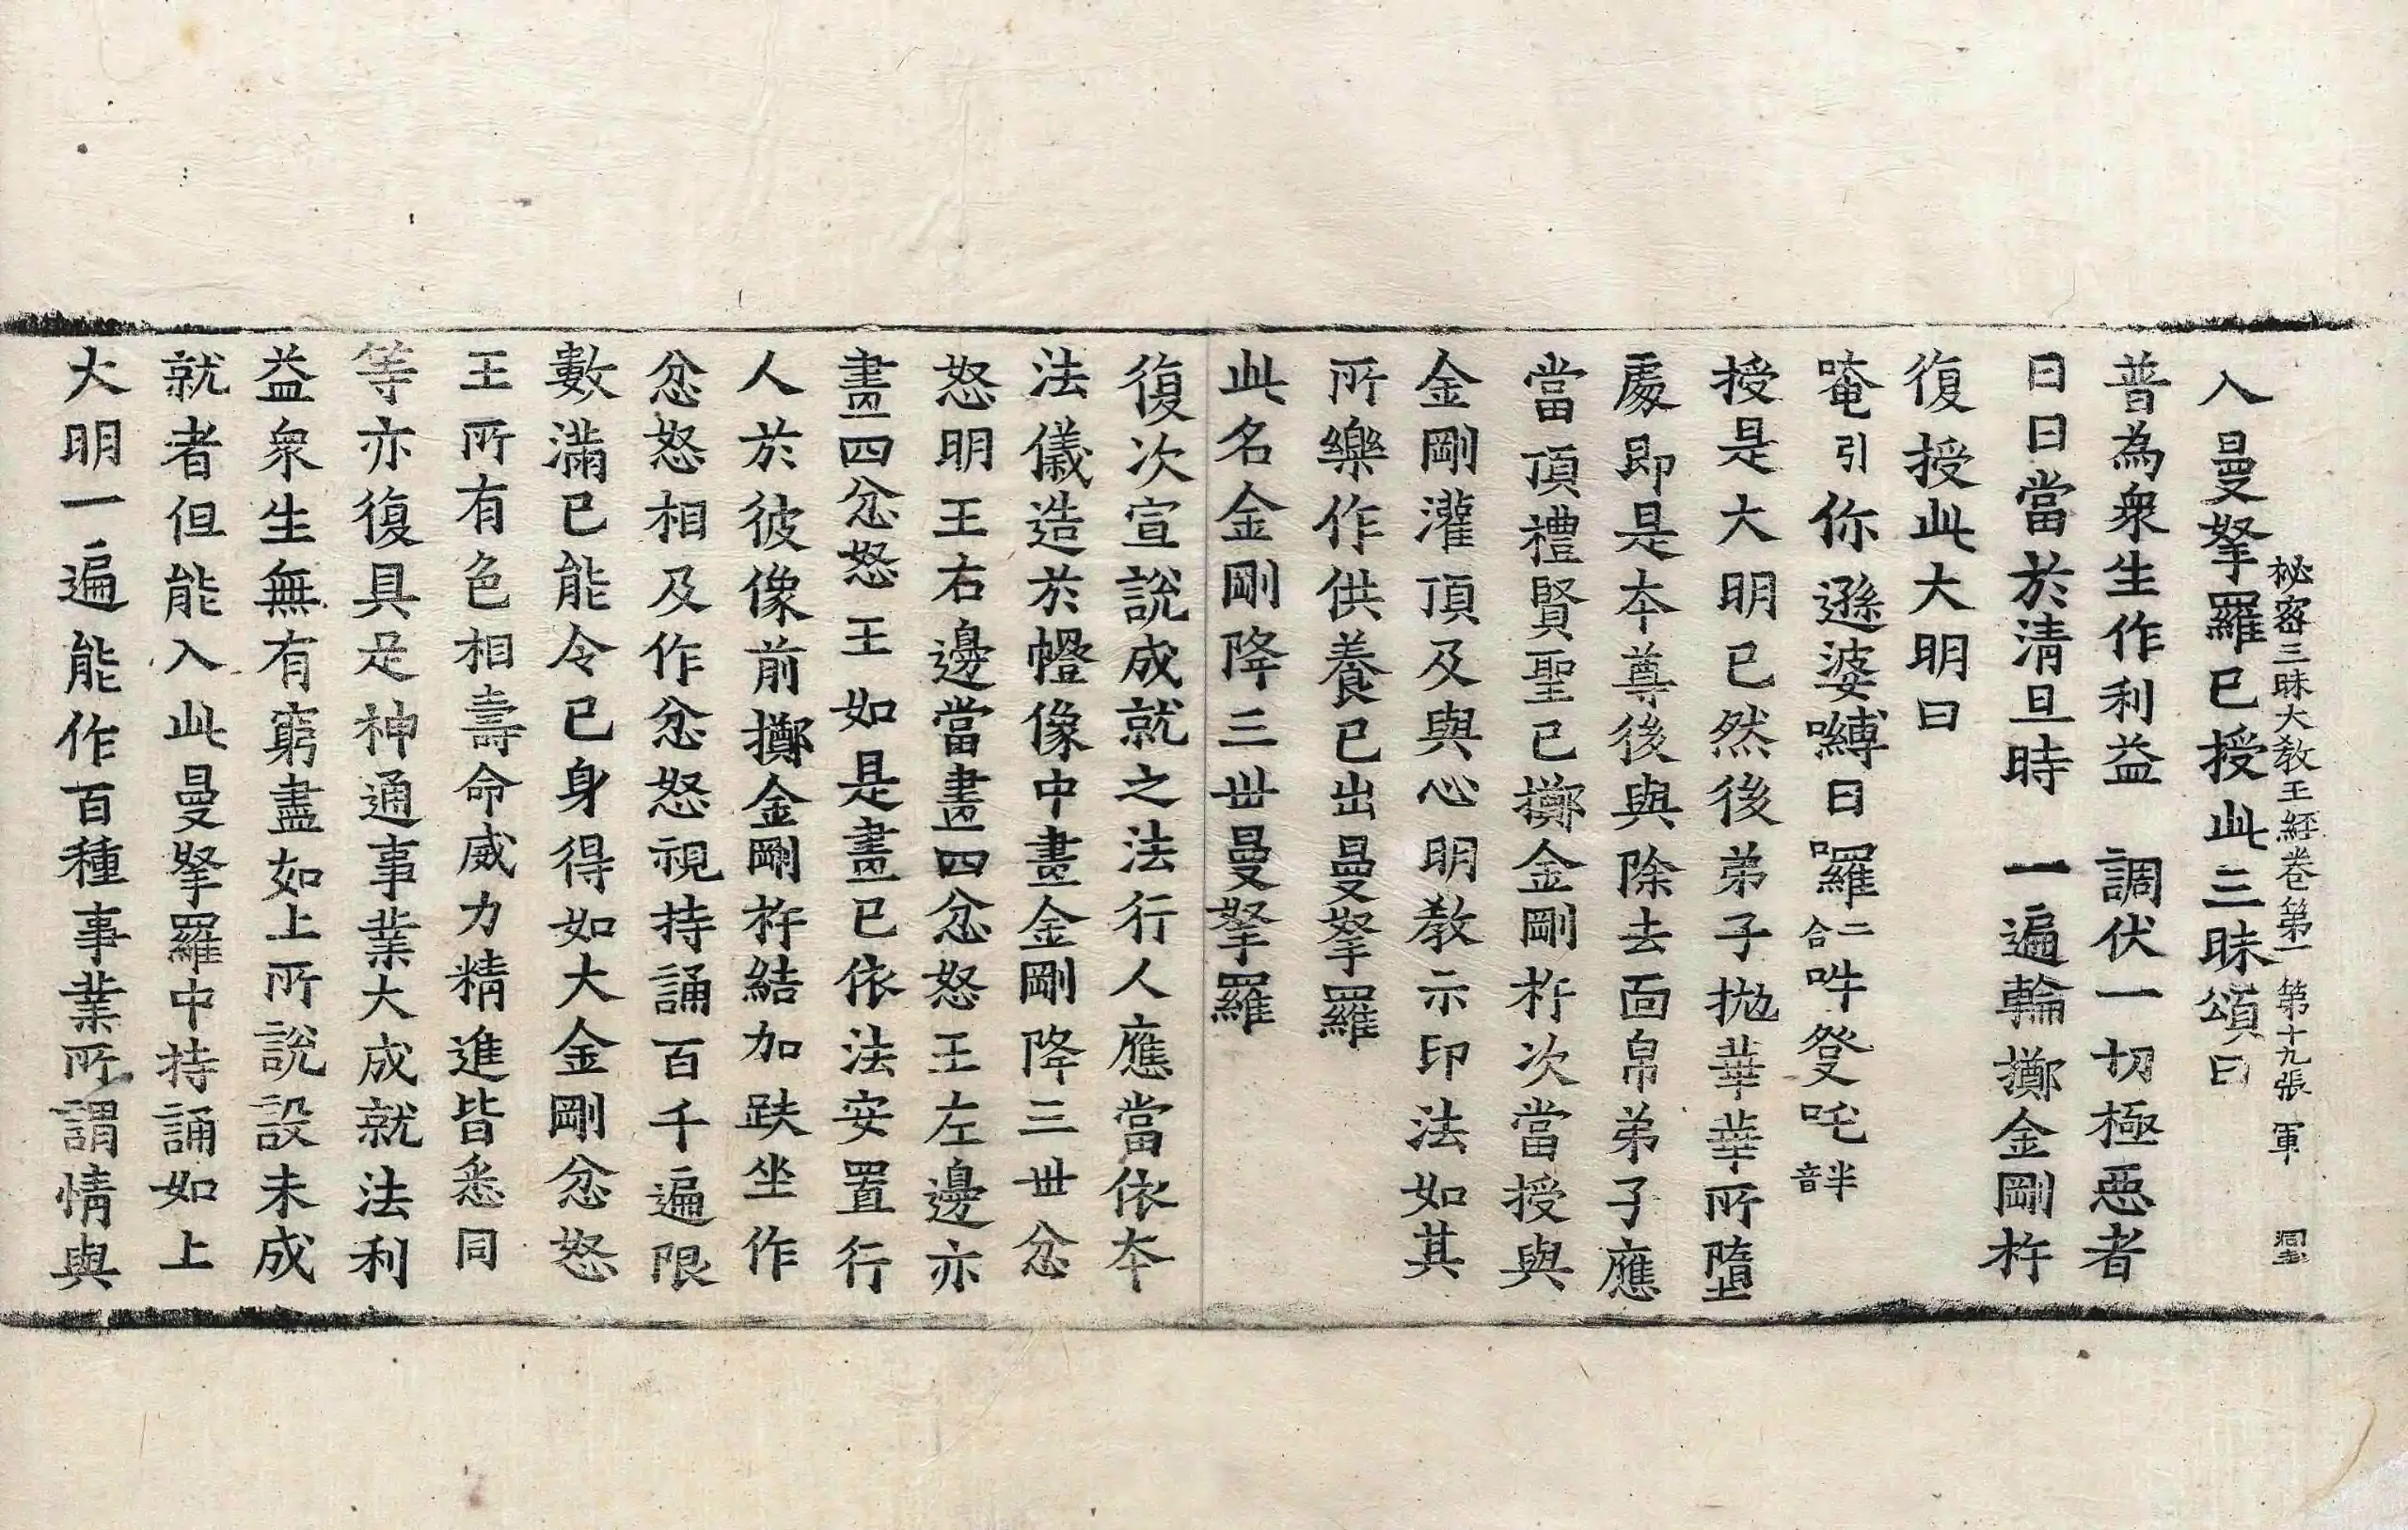 秘密三昧大教王經卷第一 第十九張 軍
入曼拏羅已授此三昧頌曰
普為衆生作利益 調伏一切極惡者
日日當於清旦時 一遍輪擲金剛杵
復授此大明曰
唵引你遜婆嚩日囉二合吽癹吒半音
授是大明已然後弟子拋華華所墮
處即是本尊後與除去面帛弟子應
當頂禮賢聖已擲金剛杵次當授與
金剛灌頂及與心明教示印法如其
所樂作供養已出曼拏羅
此名金剛降三世曼拏羅
復次宣說成就之法行人應當依本
法儀造於㡧像中畫金剛降三世忿
怒明王右邊當畫四忿怒王左邊亦
畫四忿怒王如是畫已依法安置行
人於彼像前擲金剛杵結加趺坐作
忿怒相及作忿怒視持誦百千遍限
數滿已能令已身得如大金剛忿怒
王所有色相壽命威力精進皆悉同
等亦復具足神通事業大成就法利
益衆生無有窮盡如上所說設未成
就者但能入此曼拏羅中持誦如上
大明一遍能作百種事業所謂情與